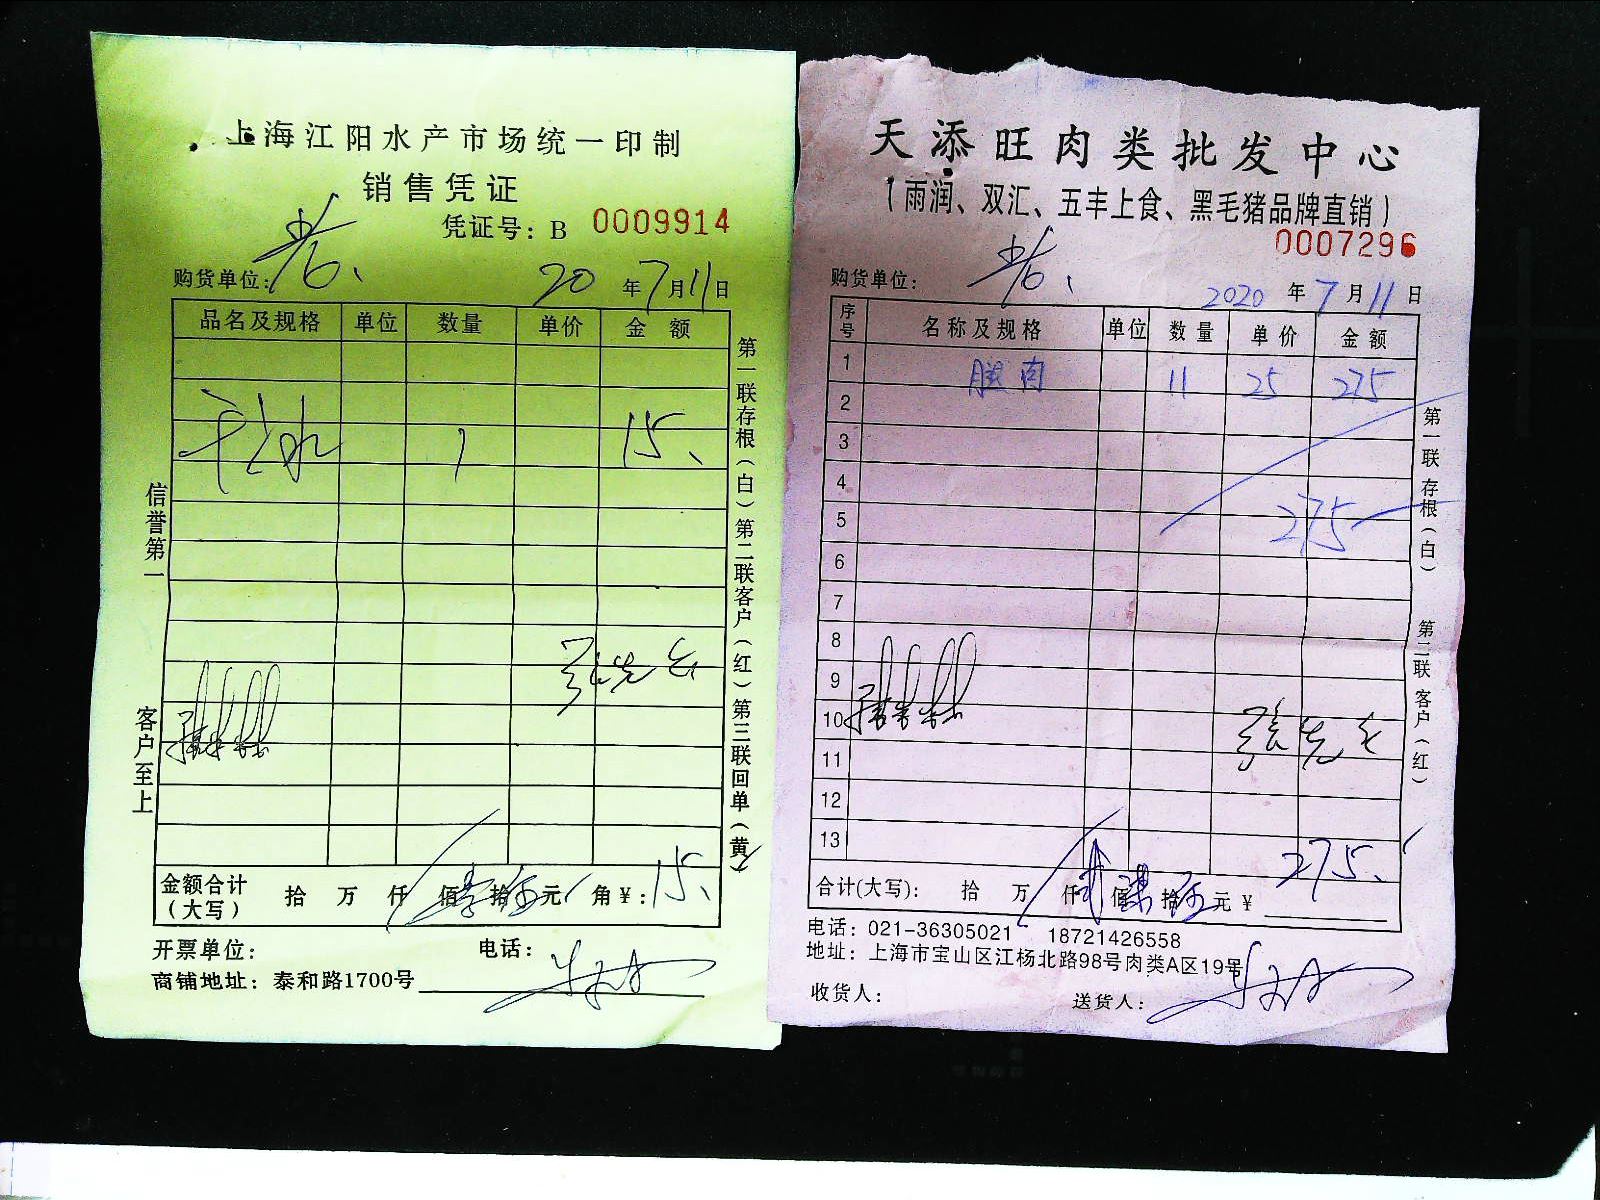 上海江阳水产市场统一印制
销售凭证
凭证号：B 0009914
购货单位： 20 年 7 月 11 日
品名及规格 单位 数量 单价 金额
1 15、
信誉第一
客户至上
第一联存根（白）第二联客户（红）第三联回单（黄）
金额合计（大写） 拾 万 仟 佰 壹 拾 伍 元 角 ¥：15、
开票单位： 电话：
商铺地址：泰和路1700号
天添旺肉类批发中心
（雨润、双汇、五丰上食、黑毛猪品牌直销）
0007296
购货单位： 2020 年 7 月 11 日
序号 名称及规格 单位 数量 单价 金额
1 腿肉 11 25 275
2
3
4
5 275
6
7
8
9
10
11
12
13 275、
第一联 存根（白） 第二联 客户（红）
合计(大写)： 拾 万 仟 贰 佰 柒 拾 伍 元 ¥
电话：021-36305021 18721426558
地址：上海市宝山区江杨北路98号肉类A区19号
收货人： 送货人：